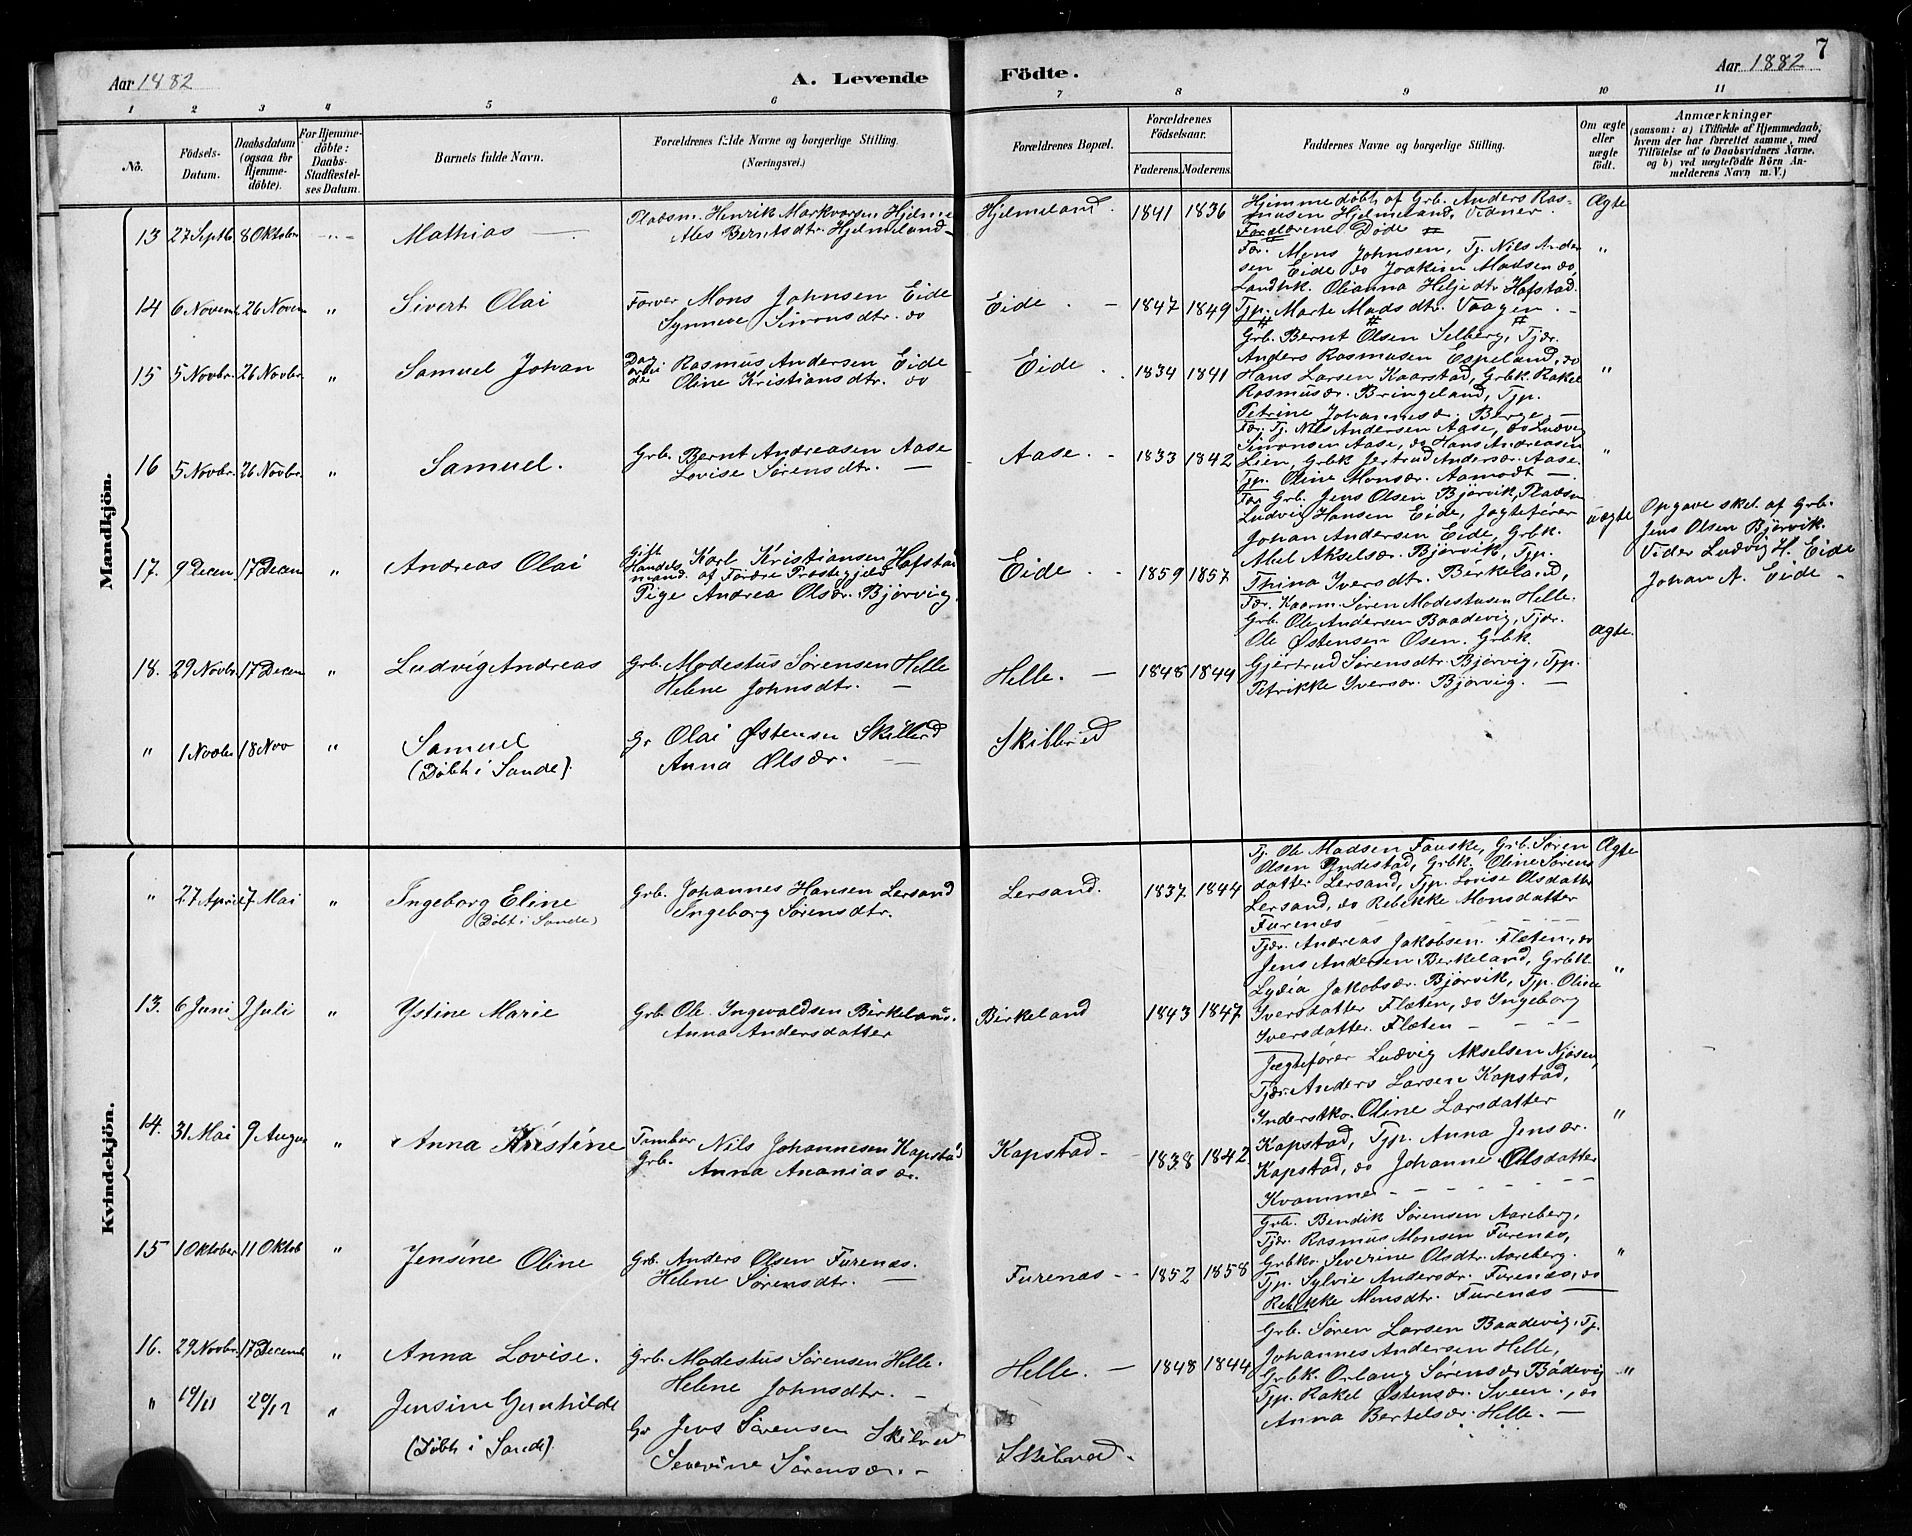 7
Aar 1882
A. Levende
Födte.
Aar 1882
1 2 3 4 5 6 7 8 9 10 11
No.
Födsels-Datum.
Daabsdatum (ogsaa for Hjemmedöbte).
For Hjemmedöbte: Daabs-Stadfæstelses Datum.
Barnets fulde Navn.
Forældrenes fulde Navne og borgerlige Stilling. (Næringsvei.)
Forældrenes Bopæl.
Forældrenes Födselsaar.
Faderens. Moderens.
Faddernes Navne og borgerlige Stilling.
Om ægte eller uægte födt.
Anmærkninger
(saasom: a) i Tilfælde af Hjemmedaab, hvem der har forrettet samme, med Tilföielse af to Daabsvidners Navne, og b) ved uægtefödte Börn Anmelderens Navn m. V.)
Mandkjön.
13 27 Septb. 8 Oktober Mathias Pladsm. Henrik Markvorsen Hjelme
Ales Berntsdtr. Hjelmeland
Hjelmeland. 1841 1836
Hjemmedøbt af Grb. Anders Ras-
musen Hjelmeland, Vidner
Forældrene Døde #
Ægte
14 6 Novem 26 Novem " Sivert Olai Farver Mons Johnsen Eide
Synneve Simonsdtr. do
Eide. 1847 1849
Far. Mons Johnsen, Tj. Nils Ander-
sen Eide do Joakim Madsen do,
Landhk. Olianna Heljedtr Hafstad.
Tjp. Marte Madsdtr. Vaagen. -
"
15 5 Novbr. 26 Novbr. " Samuel Johan Dag
arbei
de Rasmus Andersen Eide
Oline Kristiansdtr. do
Eide. 1834 1841
Grb. Bernt Olsen Selberg, Tjdr.
Anders Rasmusen Espeland, do
Hans Larsen Kaarstad, Grbk. Rakel
Rasmusdr. Bringeland, Tjp.
Petrine Johannesd. Berge. -
"
16 5 Novbr. 26 Novbr. " Samuel. Grb. Bernt Andreasen Aase
Lovise Sørensdtr. -
Aase. - 1833 1842
Far. Tj. Nils Andersen Aase, do Ludvig
Simonsen Aase, do Hans Andreasen
Lien, Grbk Jertrud Andersdr. Aase.
Tjp. Oline Monsdr. Aamodt -
"
17. 9 Decem 17 Decem " Andreas Olai Gift
Handels
mand. Karl Kristiansen Hafstad
af Førde Præstegjeld
Pige Andrea Olsdr. Bjørvig.
Eide. 1859 1857
Far Grb. Jens Olsen Bjørvik, Pladsm
Ludvig Hansen Eide, Jagtefører
Johan Andersen Eide, Grbk.
Abel Akselsdr. Bjørvik, Tjp.
Thina Iversdtr. Birkeland,
uægte
Opgave sket af Grb.
Jens Olsen Bjørvik.
Vider Ludvig H. Eide
Johan A. Eide -
18. 29 Novbr. 17 Decem " Ludvig Andreas Grb. Modestus Sørensen Helle
Helene Johnsdtr. -
Helle. - 1848 1844
Far. Kaarm. Søren Modestusen Helle.
Grb. Ole Andersen Baadevig, Tjdr.
Ole Østensen Osen. Grbk.
Gjertrud Sørensdtr. Bjørvig, Tjp.
Petrikke Iversdr. Bjørvig. -
ægte.
" 1 Novbr 18 Nov " Samuel
(Døbt i Sande).
Gr Olai Østensen Skilbred
Anna Olsdr. -
Skilbred
Kvindekjön.
" 27 April 7 Mai " Ingeborg Eline
(Døbt i Sande)
Grb. Johannes Hansen Lersand
Ingeborg Sørensdtr.
Lersand. 1837 1844
Tj. Ole Madsen Fauske, Grb. Søren
Olsen Yndestad, Grbk. Oline Sørens
datter Lersand, Tjp. Lovise Olsdatter
Lersand, do Rebekke Monsdatter
Furenæs
Ægte
13. 6 Juni 9 Juli " Ystine Marie Grb. Ole Ingvaldsen Birkeland.
Anna Andersdatter
Birkeland 1843 1847
Tjdr. Andreas Jakobsen Flæten, do
Jens Andersen Birkeland, Grbk.
Lydia Jakobsdr. Bjørvik, Tjp. Oline
Iversdatter Flæten, do Ingeborg
Iversdatter. Flæten - - - -
"
14. 31 Mai 9 Augus " Anna Kristine Tømber
Grb. Nils Johannesen Kapstad
Anna Ananiasdr.
Kapstad- 1838 1842
Jægtefører Ludvig Akselsen Njøsen,
Tjdr. Anders Larsen Kapstad,
Inderstko. Oline Larsdatter
Kapstad, Tjp. Anna Jensdr.
Kapstad, do Johanne Olsdatter
Kvamme - - - - -
"
15 1 Oktober 11 Oktob " Jensine Oline Grb. Anders Olsen Furenæs.
Helene Sørensdtr. -
Furenæs - 1852 1858
Grb. Bendik Sørensen Aareberg,
Tjdr. Rasmus Monsen Furenæs,
Grbk. Severine Olsdtr. Aareberg.
Tjp. Sylvie Andersdr. Furenæs, do
Rebekke Monsdtr. Furenæs -
"
16. 29 Novbr. 17 Decemb " Anna Lovise. Grb. Modestus Sørensen Helle.
Helene Johnsdtr. -
Helle. - 1848 1844
Grb. Søren Larsen Baadevig, Tj.
Johannes Andersen Helle,
Grbk. Orlaug Sørensdr Bådevig
Tjp. Rakel Østensdr. Sveen., do
Anna Bertelsdr. Helle. -
"
" 19/11 20/12 " Jensine Gunhilde
(Døbt i Sande).
Gr Jens Sørensen Skilbred
Severine Sørensdr. -
Skilbred.